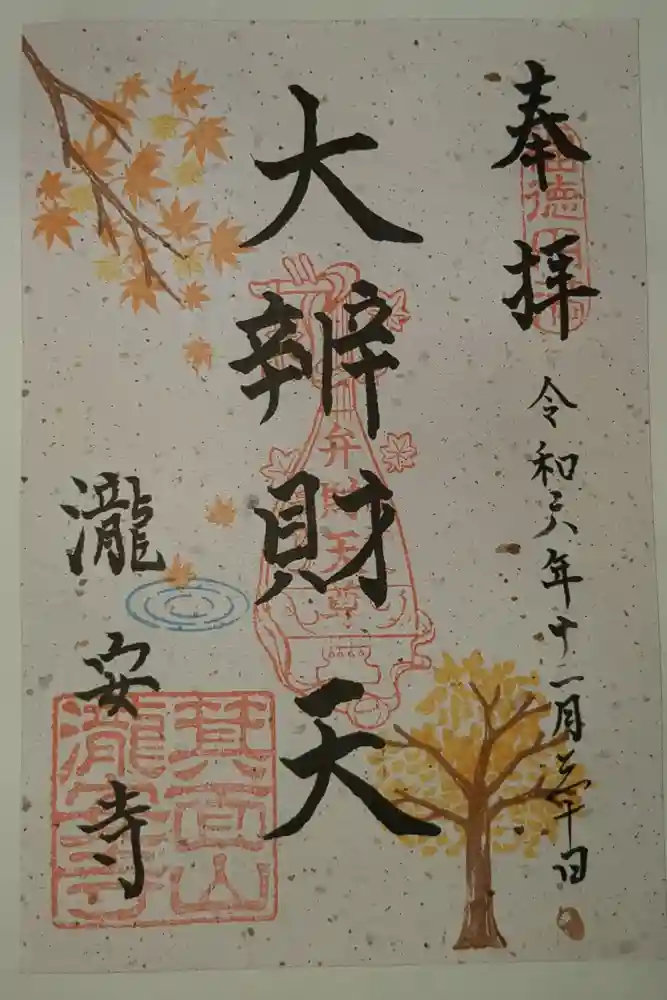 奉拝
令和六年十二月三十日
大辨財天
弁財天
瀧安寺
箕面山
瀧安寺